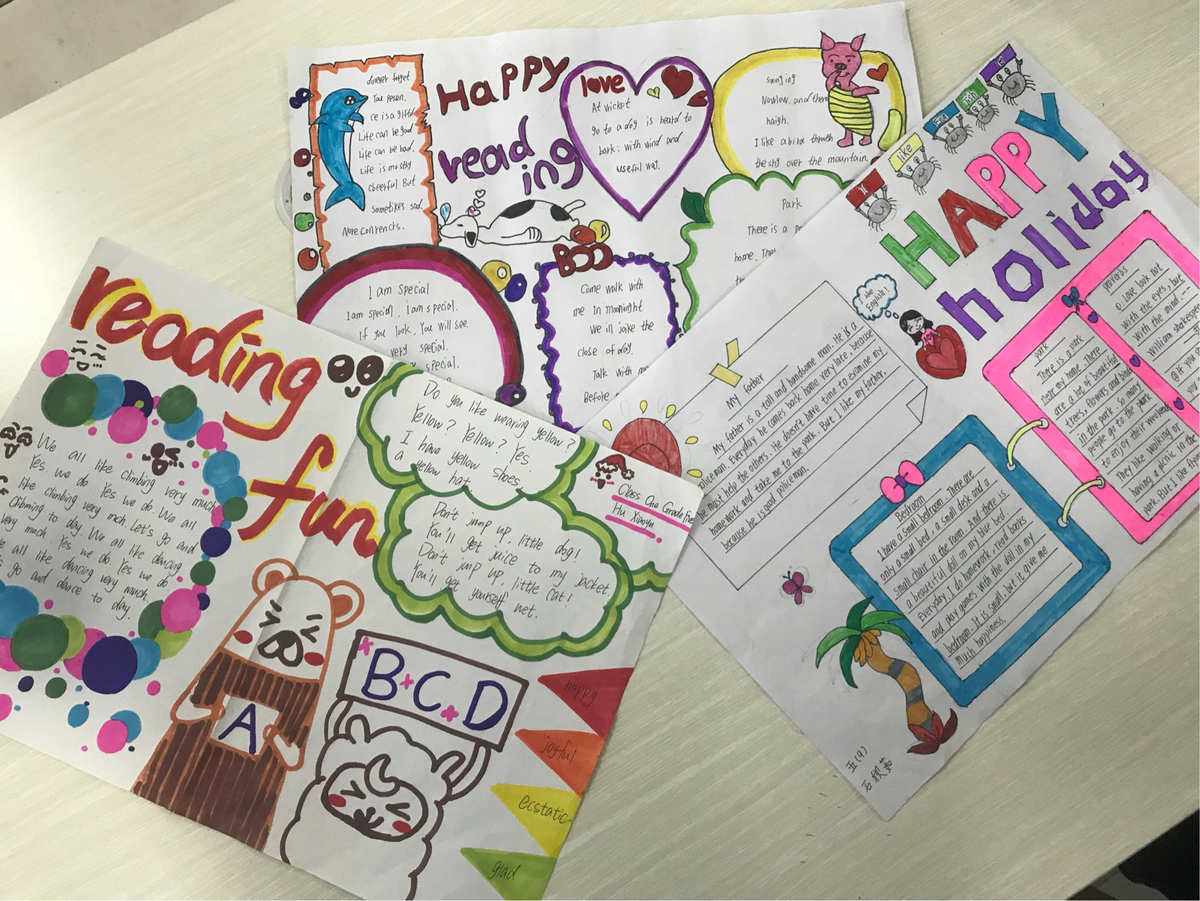 Happy
reading
Life can be good
Life can be bad.
Life is mostly
cheerful But
sometikes sad.
love
At wicket
go to a dog is heard to
bark: with wind and
useful way.
singing
haigh.
I like a bird through
the sky over the mountain.
Park
There is a
home.
I am special
I am special. I am special.
If you look. You will see
very special.
special.
BOO
Come walk with
me in moonlight
close of day.
Talk with
Before
reading
fun
We all like climbing very much
Yes we do Yes we do We all
like climbing very mch Let's go and
climbing to day. We all like dancing
very much. Yes we do. Yes we do.
all like dancing very much
go and dance to day.
Do you like wearing yellow?
Yellow? Yellow? Yes
I have yellow shoes
a yellow hat
Don't jump up, little dog!
You'll get juice to my jacket.
Don't jump up, little cat!
You'll get yourself wet.
Class One Grade Five
Hu Xiaoyu
A
B C D
happy
joyful
ecstatic
glad
I
like
HAPPY
holiday
I like
English!
My father
My father is a tall and handsome man. He is a
policeman. Everyday he comes back home very late, because
he must help the others. He doesn't have time to examine my
homework and take me to the park. But I like my father,
because he is good policeman.
Bedroom
I have a small bedroom. There are
only a small bed, a small desk and a
small chair in the room. And there is
a beautiful doll on my blue bed.
Everyday I do homework, read books
and play games with the doll in my
bedroom. It is small, but it give me
much happiness.
park
There is a park
near my home. There
are a lot of beautiful
trees, flowers and birds
in the park. So many
people go to the park
to enjoy their weekend.
They like walking or
having a picnic in the
park. But I like
proverbs
① Love look not
with the eyes, but
with the mind.
William Shakespe
五(4)